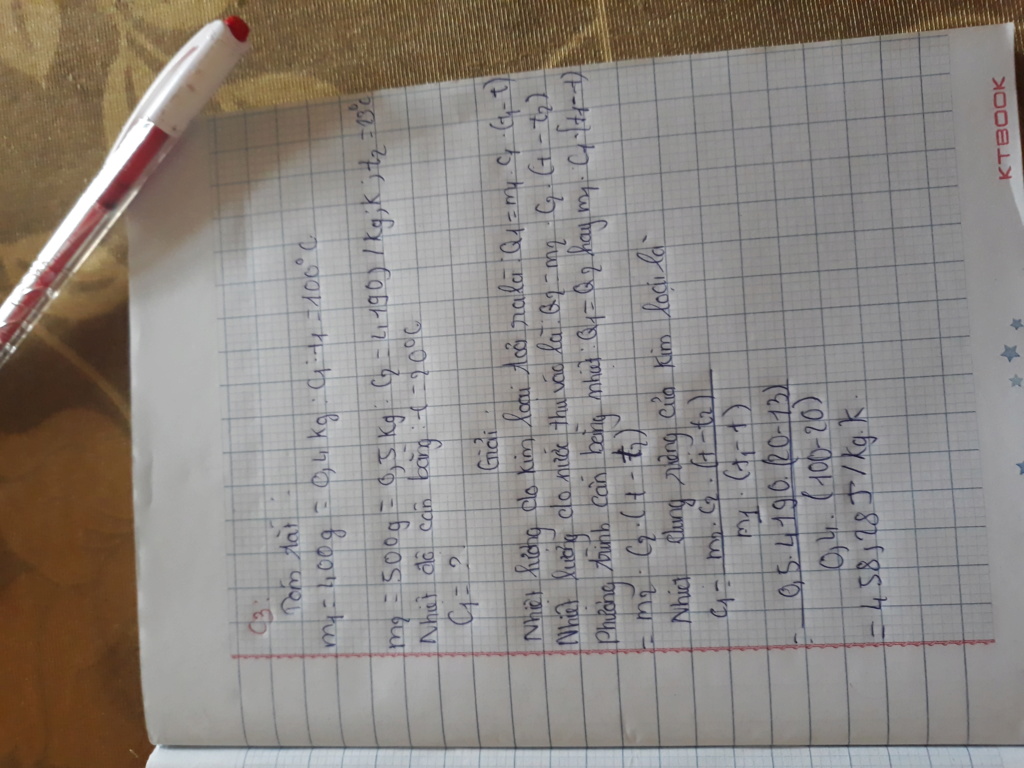 C3:
Tóm tắt:
m1 = 400g = 0,4kg; C1; t1 = 100°C
m2 = 500g = 0,5kg; C2 = 4190J/kg.K; t2 = 13°C
Nhiệt độ cân bằng: t = 20°C
C1 = ?
Giải:
Nhiệt lượng do kim loại tỏa ra là: Q1 = m1.C1.(t1-t)
Nhiệt lượng do nước thu vào là: Q2 = m2.C2.(t-t2)
Phương trình cân bằng nhiệt: Q1 = Q2 hay m1.C1.(t1-t)
= m2.C2.(t-t2)
Nhiệt dung riêng của kim loại là
C1 = m2.C2.(t-t2)
m1.(t1-t)
= 0,5.4190.(20-13)
0,4.(100-20)
= 458,28J/kg.K
KTBOOK